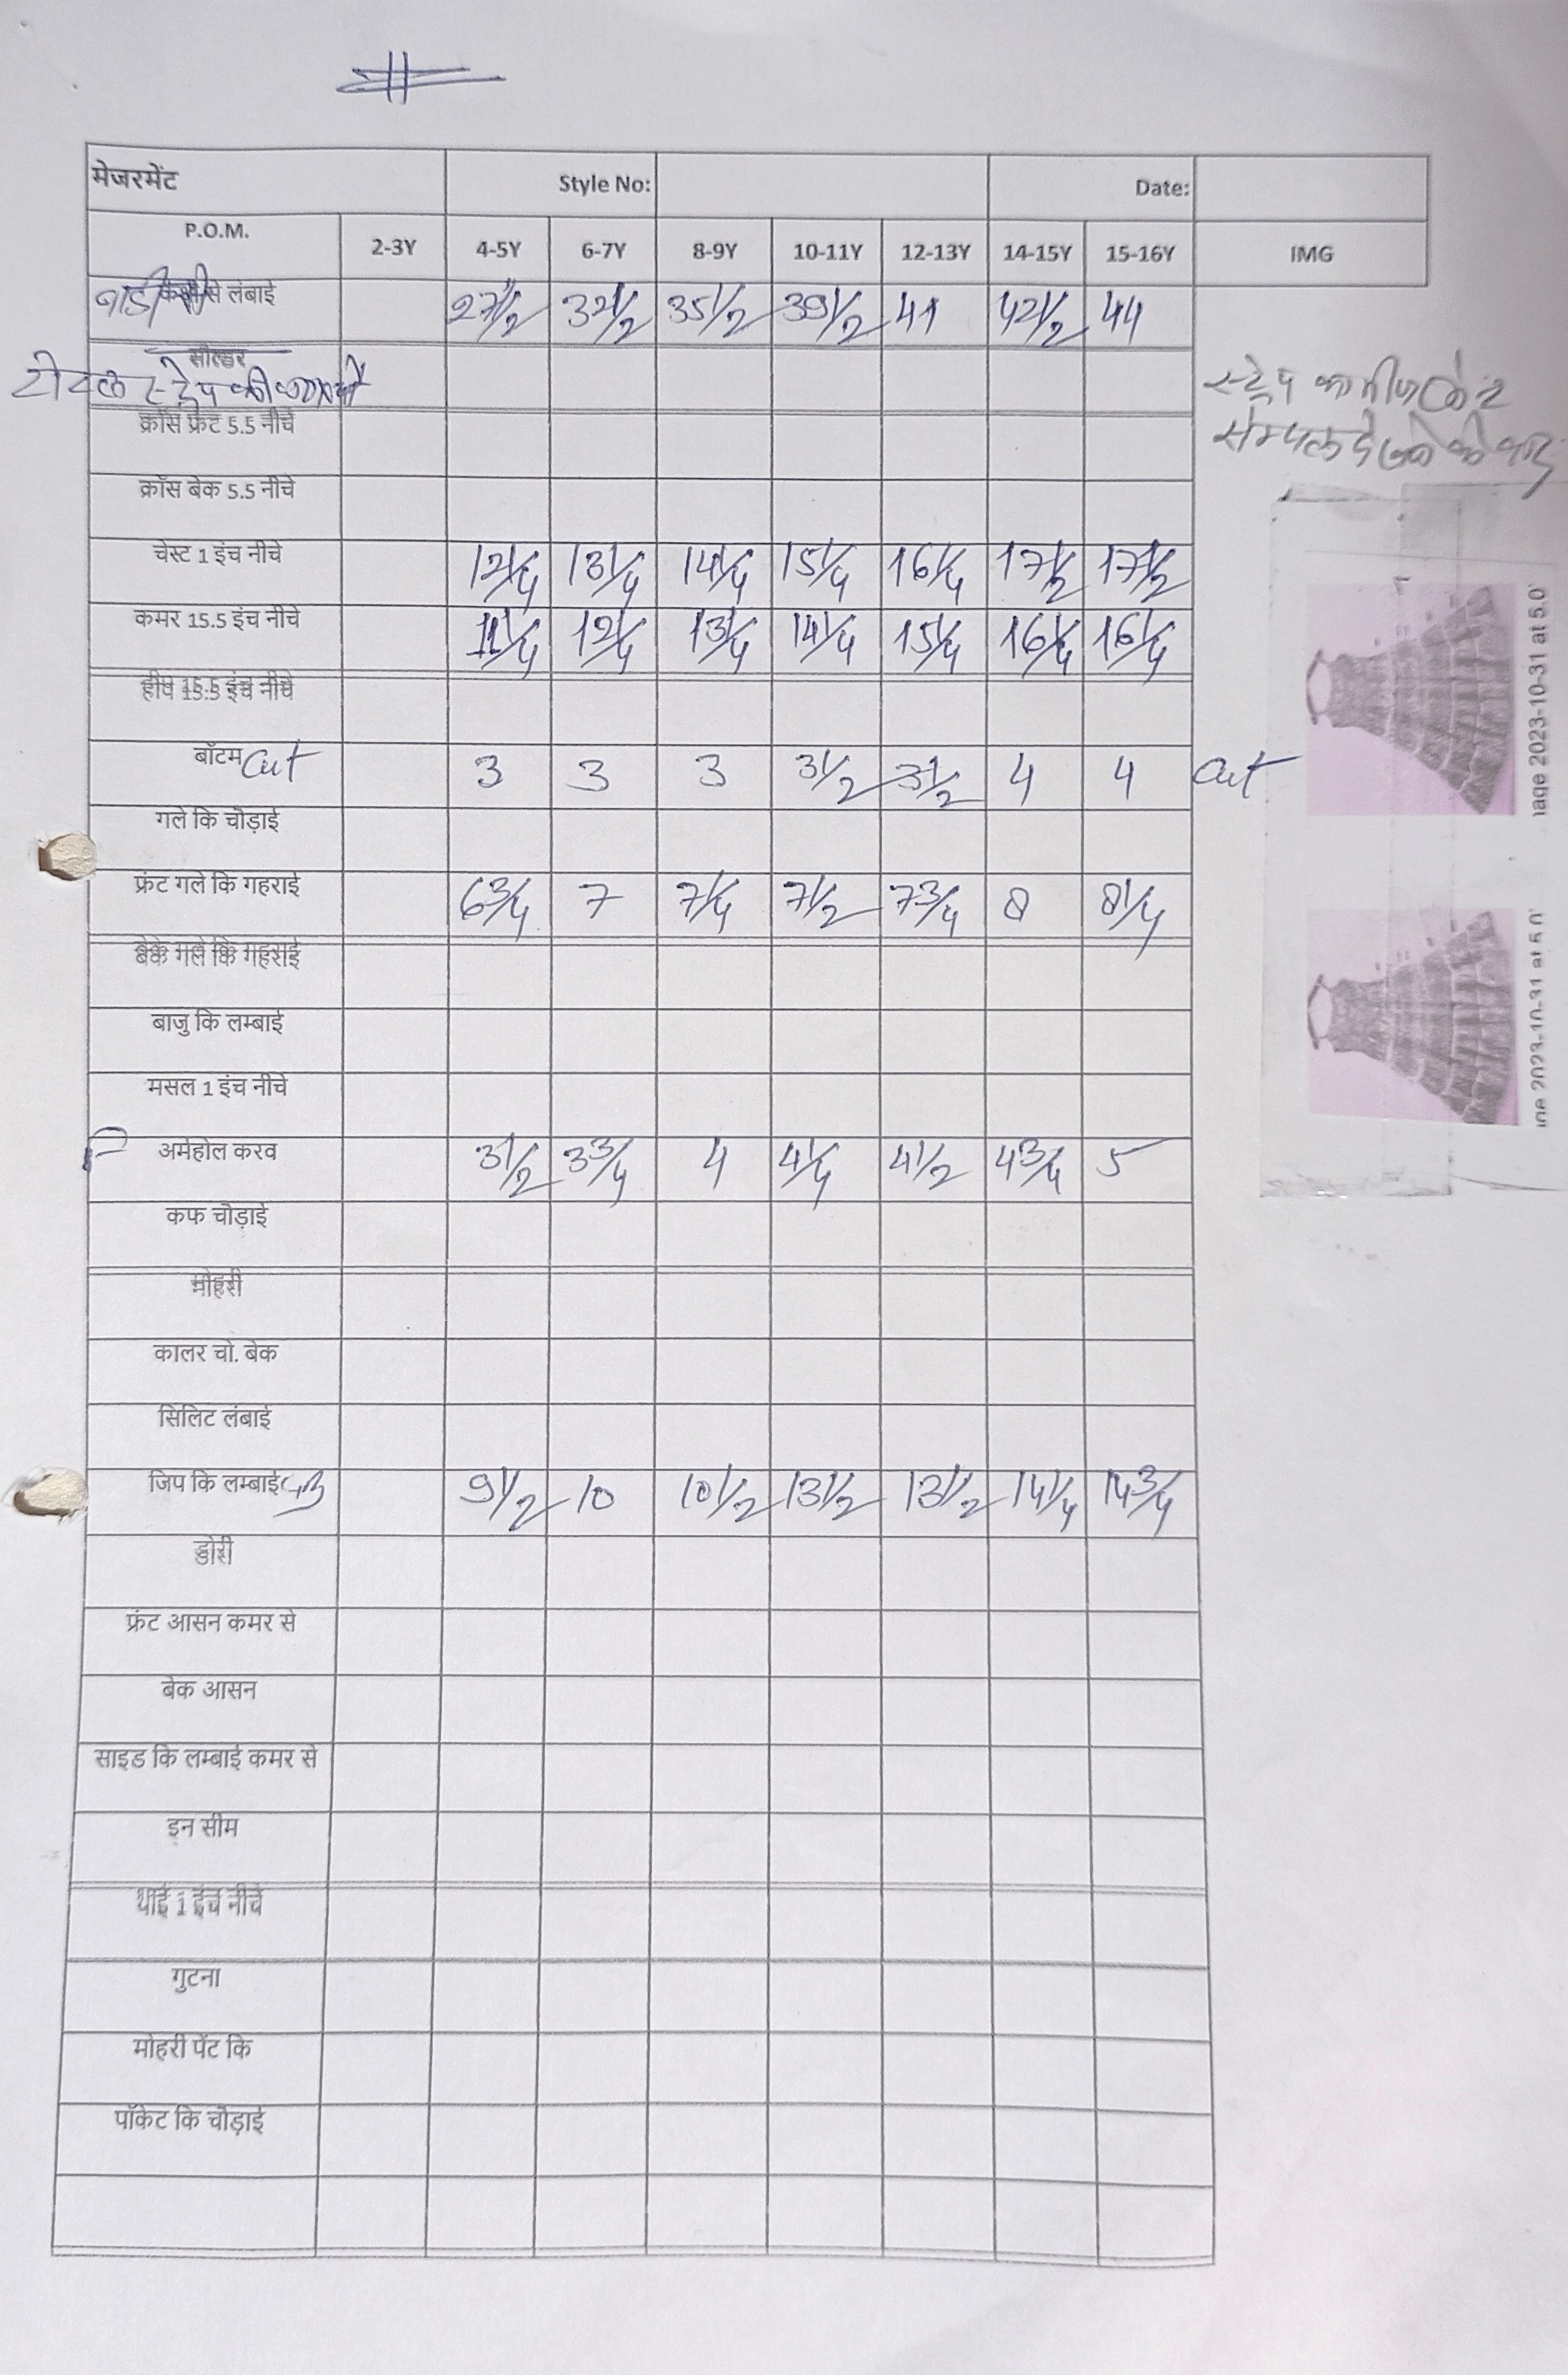 मेजरमेंट Style No: Date:
P.O.M. 2-3Y 4-5Y 6-7Y 8-9Y 10-11Y 12-13Y 14-15Y 15-16Y IMG
बाडी से लंबाई 27 1/2 32 1/2 35 1/2 39 1/2 41 42 1/2 44
सोल्डर
टोटल स्ट्रेप की लम्बाई
स्ट्रेप का मेजरमेन्ट
सेम्पल देखने के बाद
क्रॉस फ्रंट 5.5 नीचे
क्रॉस बेक 5.5 नीचे
चेस्ट 1 इंच नीचे 12 1/4 13 1/4 14 1/4 15 1/4 16 1/4 17 1/2 17 1/2
कमर 15.5 इंच नीचे 11 1/4 12 1/4 13 1/4 14 1/4 15 1/4 16 1/4 16 1/4
हीप 15.5 इंच नीचे
बॉटम Cut 3 3 3 3 1/2 3 1/2 4 4 Cut
गले कि चौड़ाई
फ्रंट गले कि गहराई 6 3/4 7 7 1/4 7 1/2 7 3/4 8 8 1/4
बेक गले कि गहराई
बाजु कि लम्बाई
मसल 1 इंच नीचे
अर्महोल करव 3 1/2 3 3/4 4 4 1/4 4 1/2 4 3/4 5
कफ चौड़ाई
मोहरी
कालर चो. बेक
सिलिट लंबाई
जिप कि लम्बाई 9 1/2 10 10 1/2 13 1/2 13 1/2 14 1/4 14 3/4
डोरी
फ्रंट आसन कमर से
बेक आसन
साइड कि लम्बाई कमर से
इन सीम
थाई 1 इंच नीचे
गुटना
मोहरी पेंट कि
पॉकेट कि चौड़ाई
2023-10-31 at 5.0
2023-10-31 at 5.0